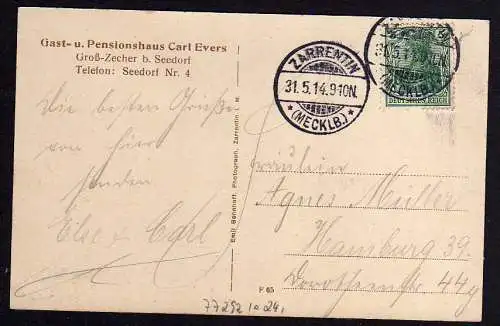 Gast- u. Pensionshaus Carl Evers
Groß-Zecher b. Seedorf
Telefon: Seedorf Nr. 4
ZARRENTIN
31.5.14.9-10N.
* (MECKLB.) *
31.5.1
10N.
(MECKLB.)
DEUTSCHES REICH
Die besten Grüße
von hier
senden
Else & Carl
Emil Benehoft, Photograph, Zarrentin i. M.
Fräulein
Agnes Müller
Hamburg 39.
Dorotheenstr 44g
F 65